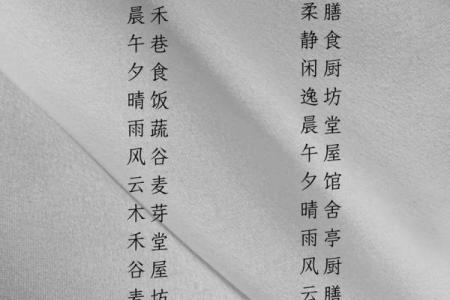 膳食厨坊堂屋馆舍亭厨膳
柔静闲逸晨午夕晴雨风云
禾巷食饭蔬谷麦芽堂屋坊
晨午夕晴雨风云木禾谷麦